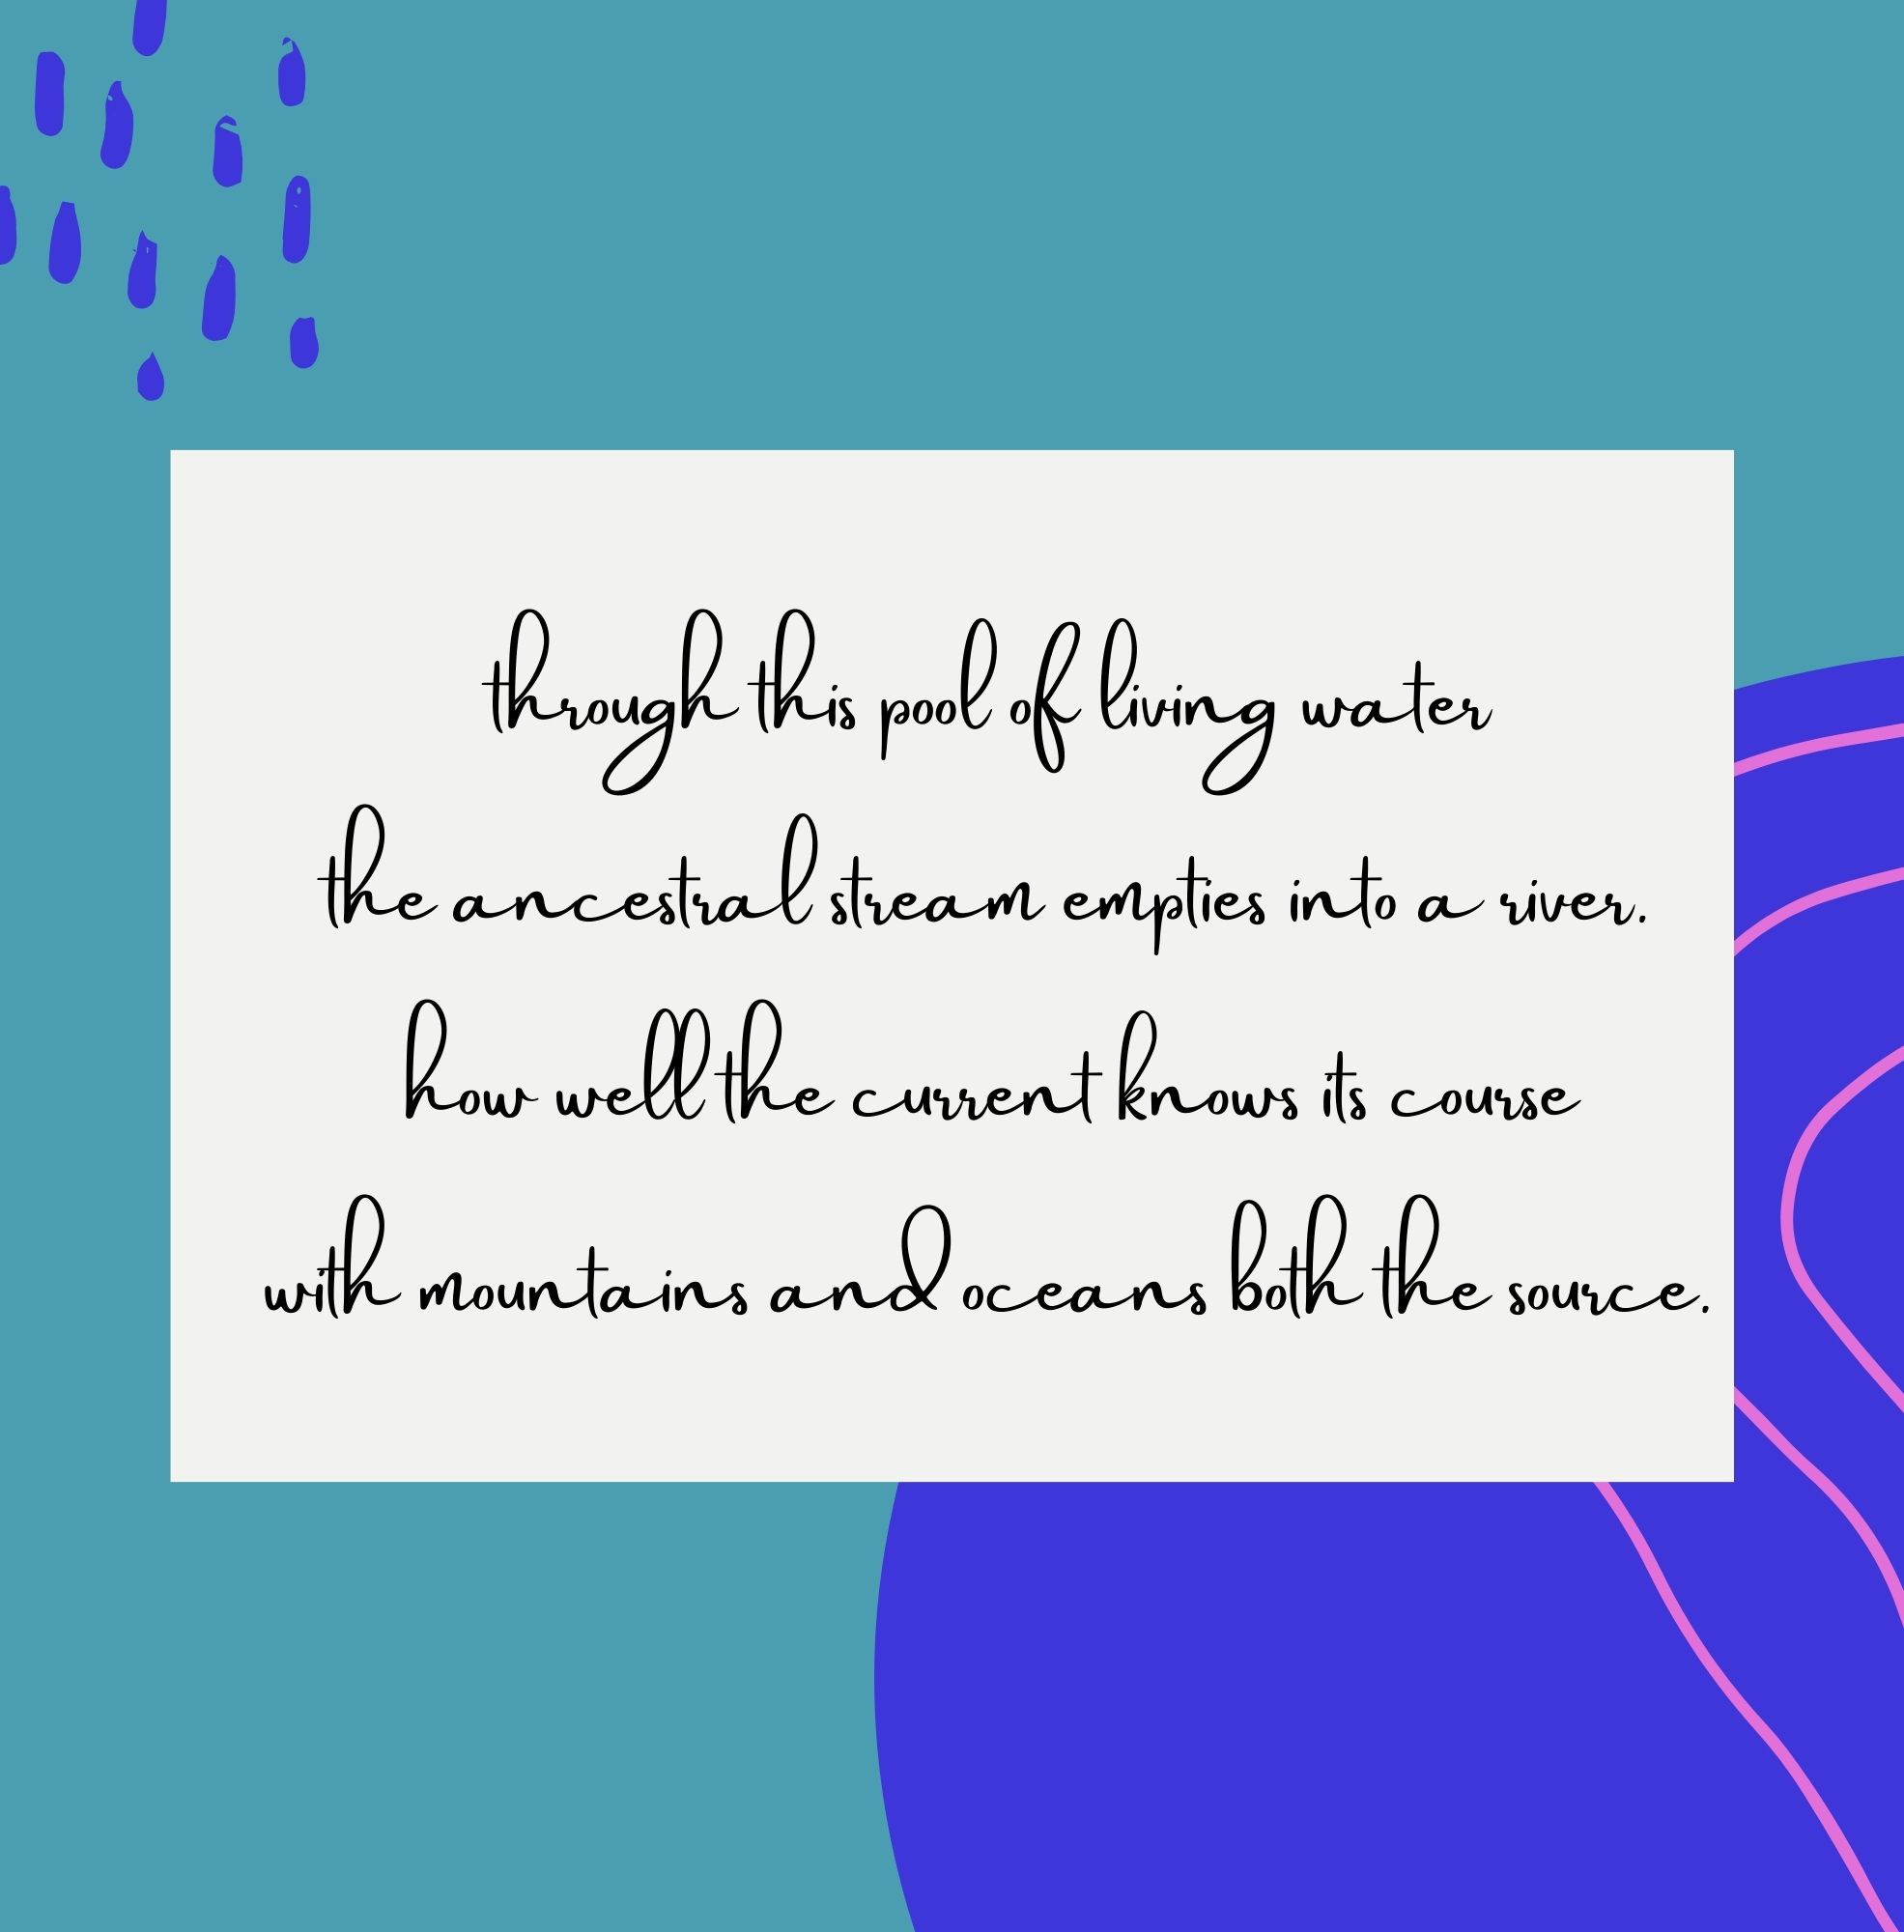 through this pool of living water
the ancestral stream empties into a river.
how well the current knows its course
with mountains and oceans both the source.